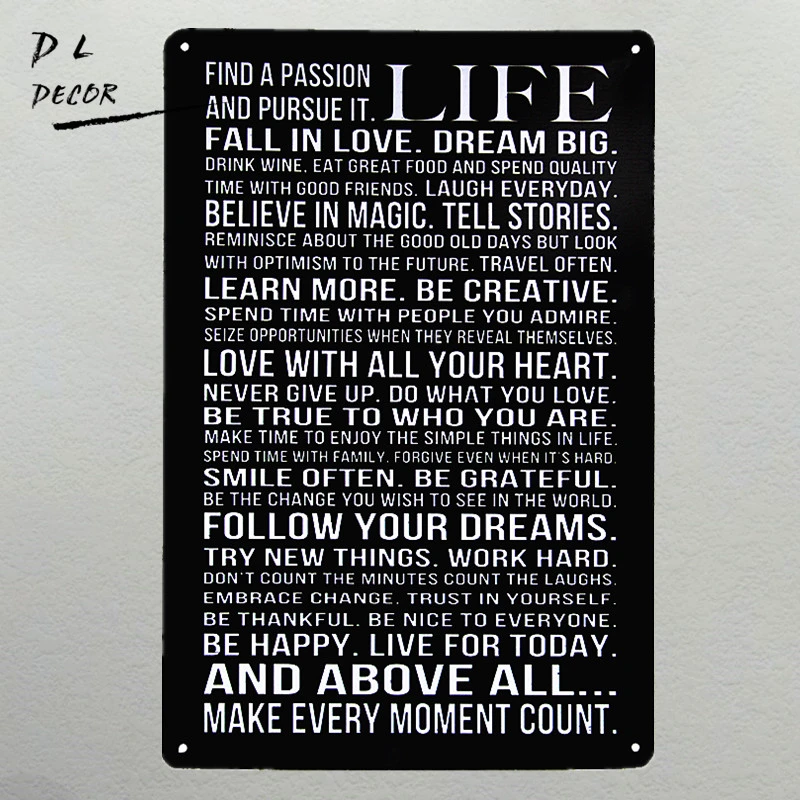 D L
DECOR
FIND A PASSION
AND PURSUE IT.
LIFE
FALL IN LOVE. DREAM BIG.
DRINK WINE, EAT GREAT FOOD AND SPEND QUALITY
TIME WITH GOOD FRIENDS. LAUGH EVERYDAY.
BELIEVE IN MAGIC. TELL STORIES.
REMINISCE ABOUT THE GOOD OLD DAYS BUT LOOK
WITH OPTIMISM TO THE FUTURE. TRAVEL OFTEN.
LEARN MORE. BE CREATIVE.
SPEND TIME WITH PEOPLE YOU ADMIRE.
SEIZE OPPORTUNITIES WHEN THEY REVEAL THEMSELVES.
LOVE WITH ALL YOUR HEART.
NEVER GIVE UP. DO WHAT YOU LOVE.
BE TRUE TO WHO YOU ARE.
MAKE TIME TO ENJOY THE SIMPLE THINGS IN LIFE.
SPEND TIME WITH FAMILY. FORGIVE EVEN WHEN IT'S HARD.
SMILE OFTEN. BE GRATEFUL.
BE THE CHANGE YOU WISH TO SEE IN THE WORLD.
FOLLOW YOUR DREAMS.
TRY NEW THINGS. WORK HARD.
DON'T COUNT THE MINUTES COUNT THE LAUGHS.
EMBRACE CHANGE. TRUST IN YOURSELF.
BE THANKFUL. BE NICE TO EVERYONE.
BE HAPPY. LIVE FOR TODAY.
AND ABOVE ALL...
MAKE EVERY MOMENT COUNT.